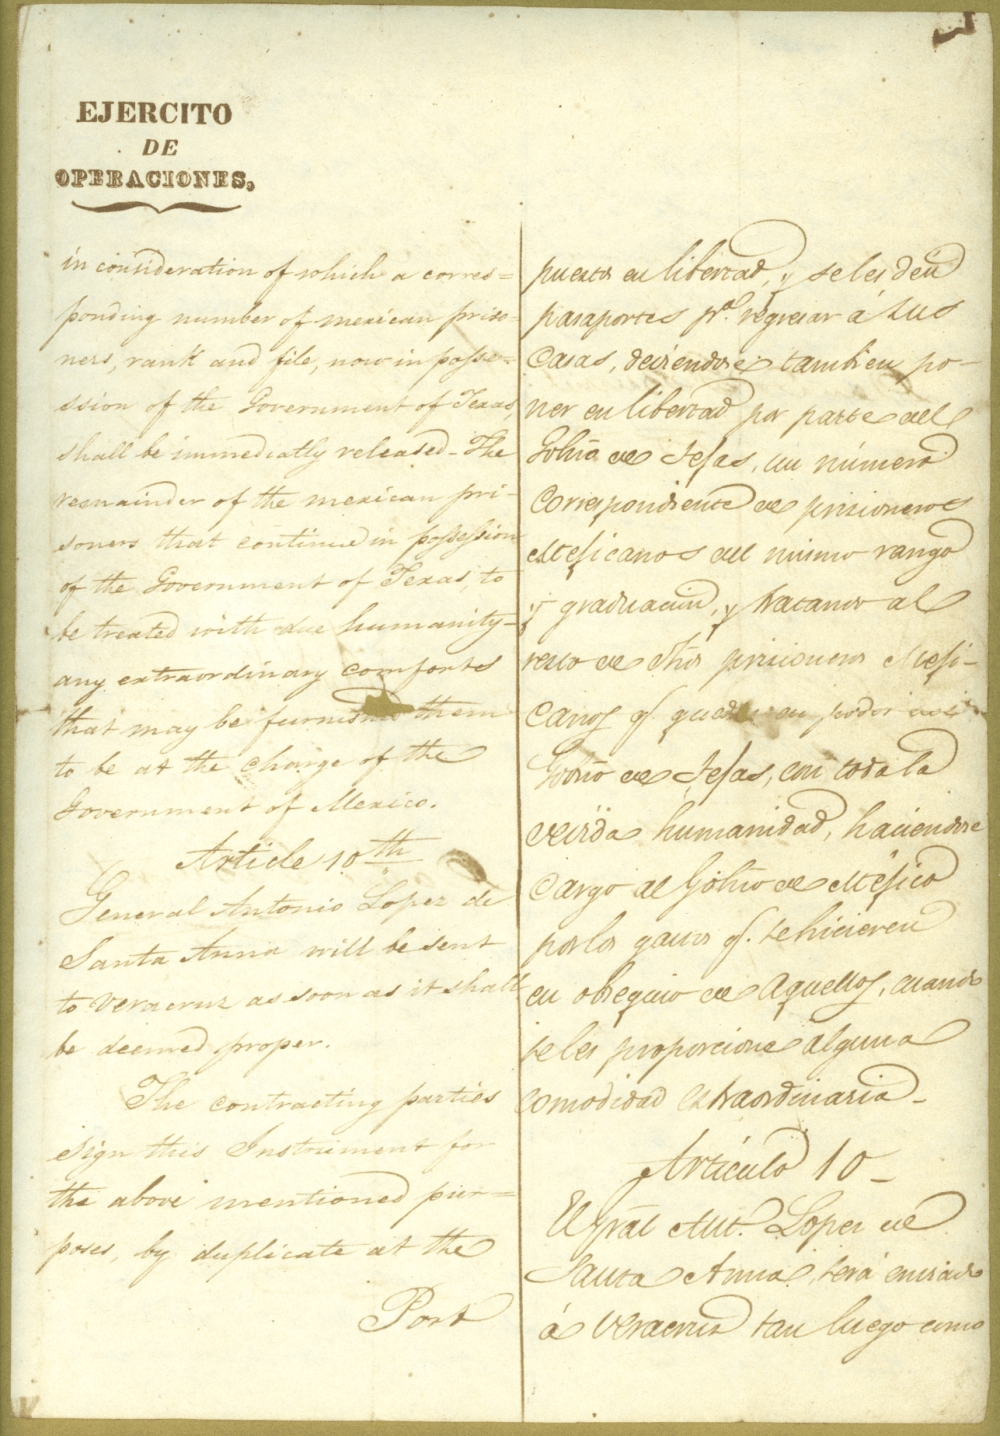 EJERCITO
DE
OPERACIONES.
in consideration of which a corres=
ponding number of mexican priso-
ners, rank and file, now in posse=
ssion of the Government of Texas,
shall be immediatly released - The
remainder of the mexican pri-
soners that continue in possession
of the Government of Texas, to
be treated with due humanity -
any extraordinary comforts
that may be furnished them
to be at the charge of the
Government of Mexico.
Article 10th
General Antonio Lopez de
Santa Anna will be sent
to Veracruz as soon as it shall
be deemed proper.
The contracting parties
sign this Instrument for
the above mentioned pur=
poses, by duplicate at the
Port
puestos en libertad, y se les den
pasaportes pa. regresar á sus
Casas, deviendose tambien po-
ner en libertad por parte del
Gobno. de Tejas, un número
Correspondiente de prisioneros
Mejicanos del mismo rango
y graduacion, y tratando al
resto de dhos prisioneros Meji-
canos q. queden en poder del
Gobno de Tejas, con toda la
devida humanidad, haciendose
Cargo al Gobno de Mejico
por los gastos q. se hicieren
en obsequio de Aquellos, cuando
se les proporcione alguna
comodidad extraordinaria -
Artículo 10 -
El Gral Ant. Lopez de
Santa Anna, será enviado
á Veracruz tan luego como